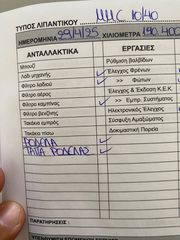 ΤΥΠΟΣ ΛΙΠΑΝΤΙΚΟΥ 10/40
ΗΜΕΡΟΜΗΝΙΑ 29/4/25 ΧΙΛΙΟΜΕΤΡΑ 190.400
ΑΝΤΑΛΛΑΚΤΙΚΑ ΕΡΓΑΣΙΕΣ
Μπουζί Ρύθμιση βαλβίδων
Λάδι μηχανής Έλεγχος Φρένων
Φίλτρο λαδιού >> Έμπρ. Συστήματος
Φίλτρο αέρος Έλεγχος & Έκδοση Κ.Ε.Κ.
Φίλτρο καμπίνας >> Εμπρ. Συστήματος
Φίλτρο βενζίνης Ηλεκτρονικός Έλεγχος
Τακάκια εμπρός Σύσφιξη Αμαξώματος
Τακάκια πίσω Δοκιμαστική Πορεία
ΡΟΔΕΛΑ
ΤΑΠΑ ΡΟΔΕΛΑΣ
ΠΑΡΑΤΗΡΗΣΕΙΣ :